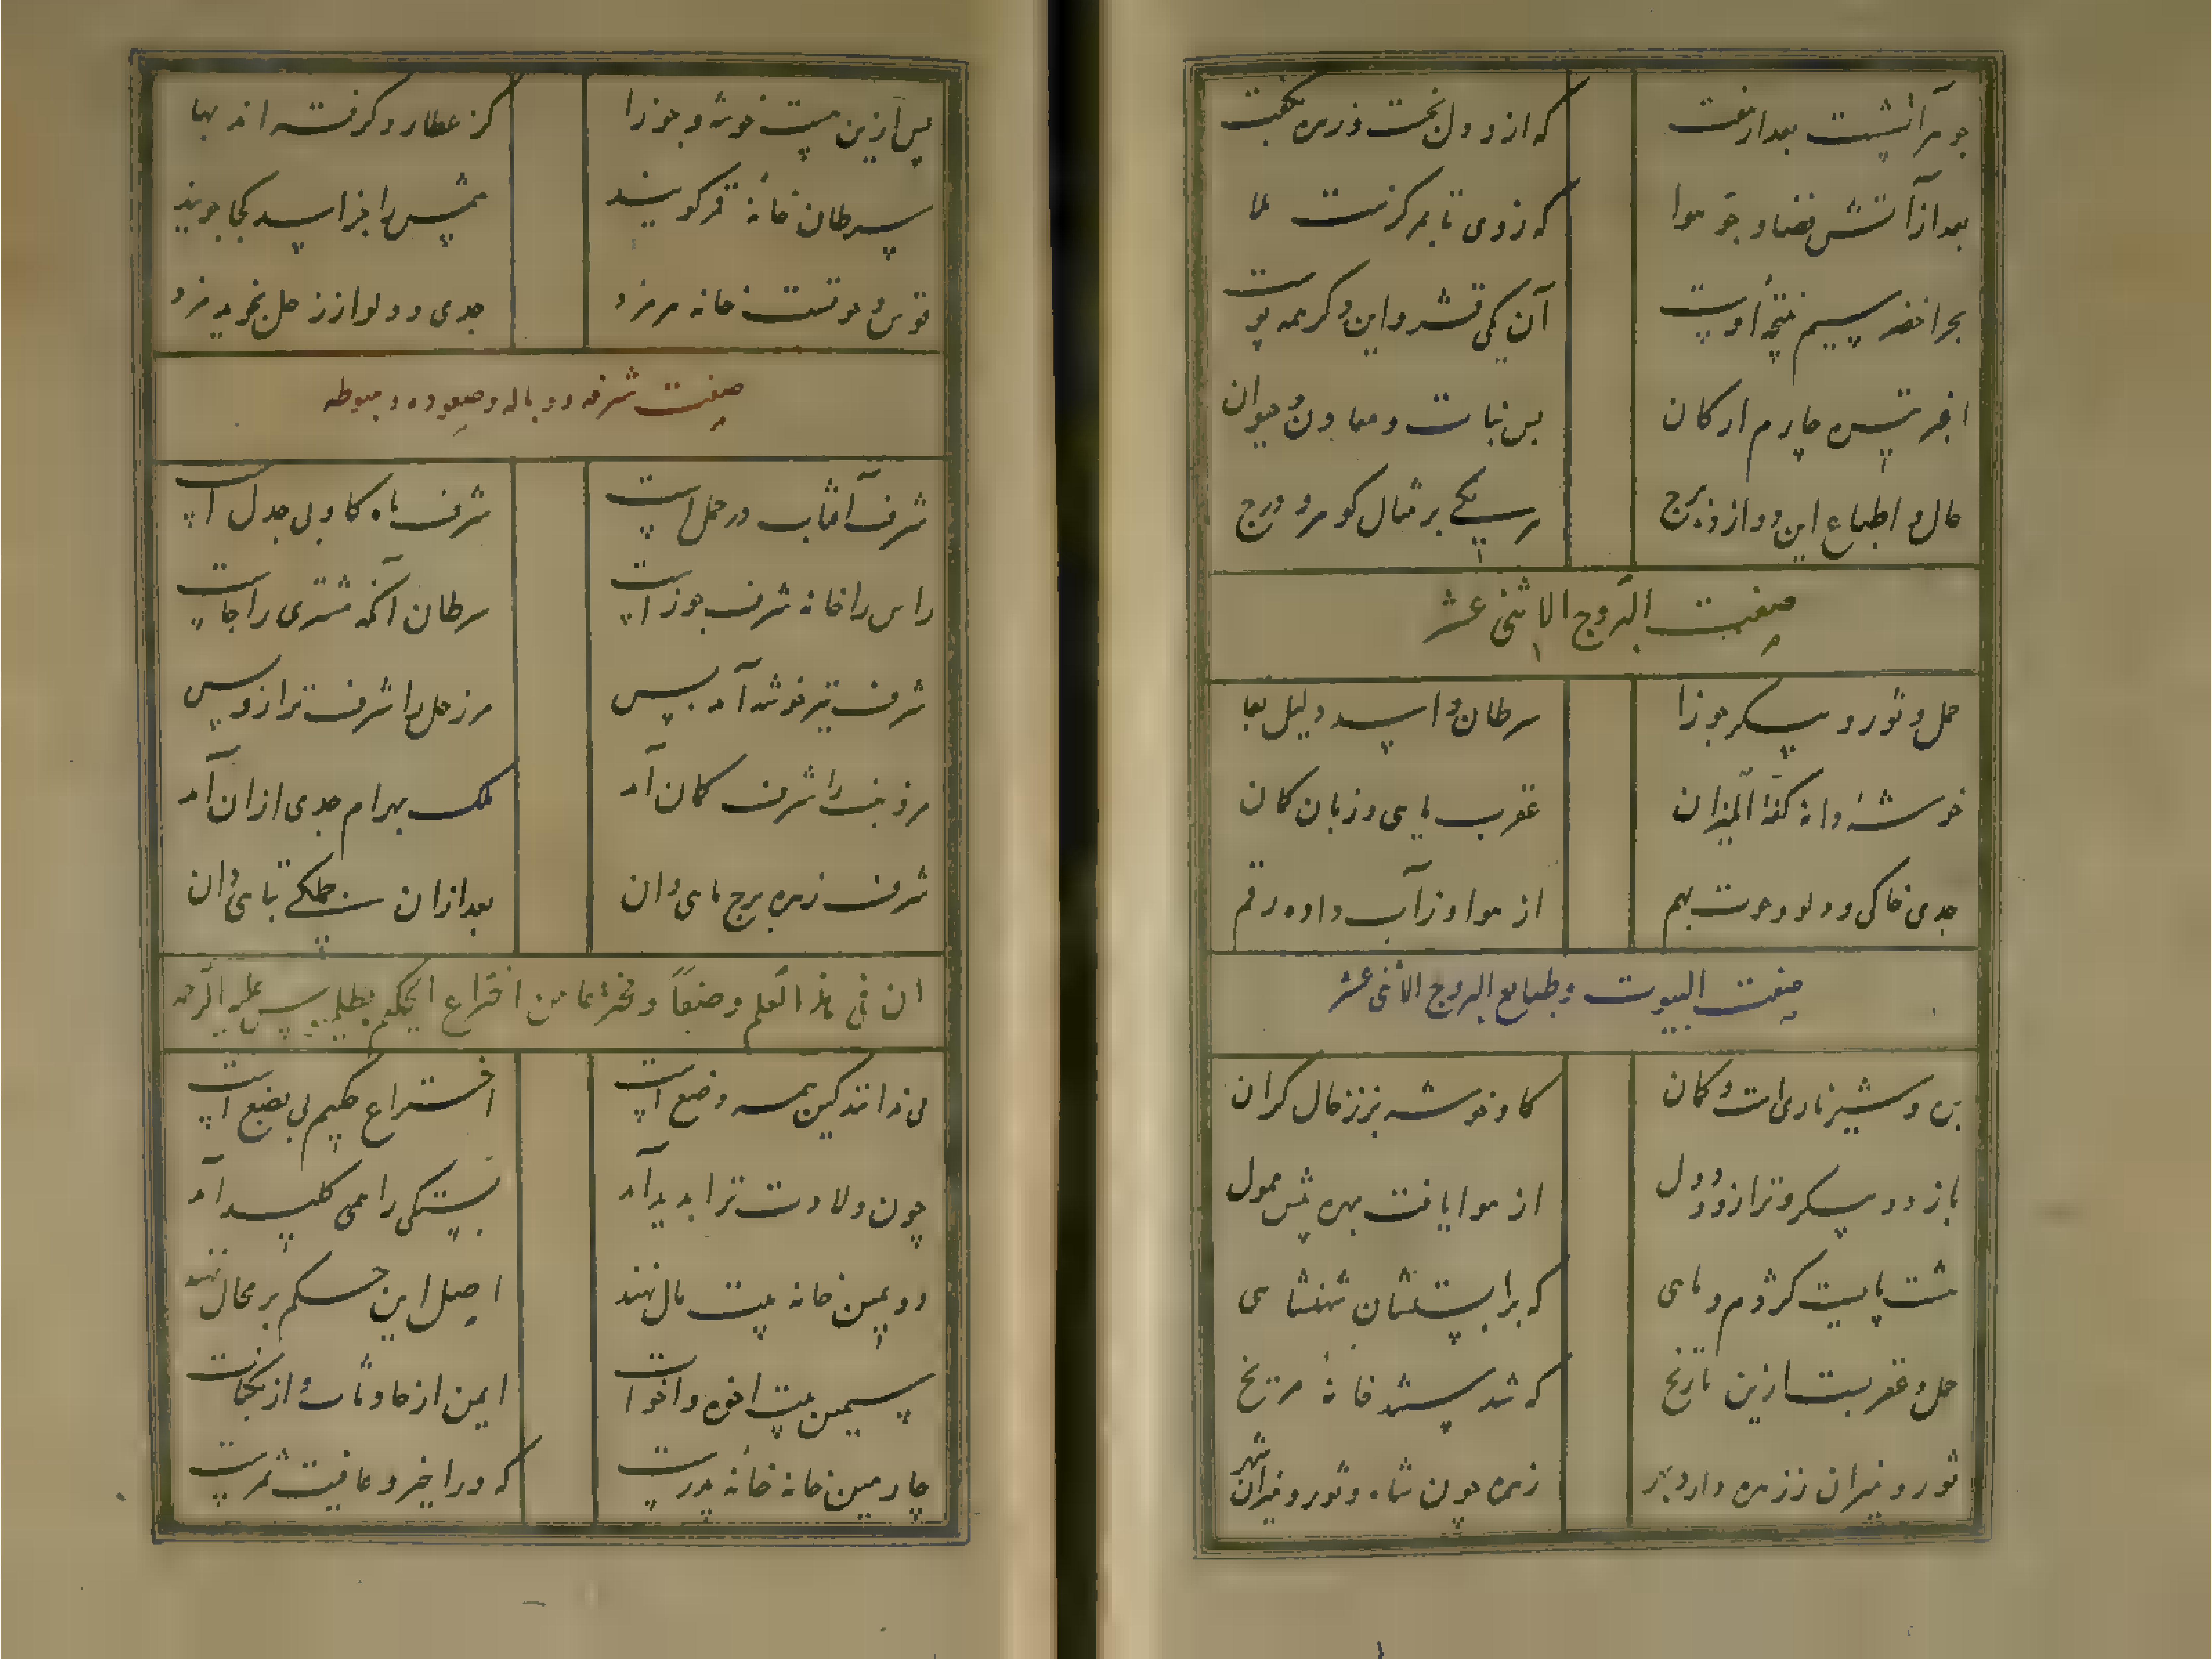 جوهر آتشست بعد از هفت که از و دل نخست و زهره بگفت
بعد از آتش فضا و جوّ هوا که ز وی تا بمرکزست ملا
بحر اخضر سیم نتیجهٔ اوست آن یکی قشر و این دگر همه پوست
اغبر تیره چارم ارکان پس نبات و معادن و حیوان
حال و اطباع این دوازده برج هر یکی بر مثال گوهر و درج
صفت البروج الاثنی عشر
حمل و ثور و دو پیکر جوزا سرطان و اسد دلیل بقا
خوشه و دانه کفهٔ المیزان عقرب
جدی خاکی و دلو و حوت بهم از هوا وز آب داده رقم
صفت البیوت و طبایع البروج الاثنی عشر
بره و شیر ناری است و کمان گاو و خوشه بزنر خاک گران
باز دو پیکر و ترازو و دول از هوا یافت بهره
هشت پایست کژدم و ماهی که بر آبستشان شهنشاهی
حمل و عقربست ازین تاریخ که شدستند خانهٔ مریخ
ثور و میزان ز زهره دارد بهر زهره چون شاه و ثور و میزان شهر
پس ازین هست خوشه و جوزا کز عطارد گرفته‌اند بها
سرطان خانهٔ قمر گویند شمس را جز اسد کجا جویند
قوس و حوتست خانه هرمزد جدی و دلو از زحل بخرید مزد
صفت شرفه و وباله و صعوده و هبوطه
شرف آفتاب در حمل است شرف ماه گاو بی جدل است
راس را خانه شرف جوزاست سرطان آنکه مشتری را جاست
شرف تیر خوشه آمد پس مر زحل را شرف ترازو بس
مر ذنب را شرف کمان آمد ملک بهرام جدی از آن آمد
شرف زهره برج ماهی دان بعد از آن
ان فی هذا العلم وضعاً و مخترعا من اختراع الحکیم بطلمیوس علیه الرحمه
می ندانند کین همه وضع است اختراع حکیم بی بضع است
چون ولادت ترا بدید آمد بستگی را همی کلید آمد
دومین خانه بیت مال نهند اصل این حکم بر محال نهند
سیمین بیت اخوه و اخوات ایمن از حادثات و از نکبات
چارمین خانه خانهٔ پدرست که ورا خیر و عافیت ثمرست